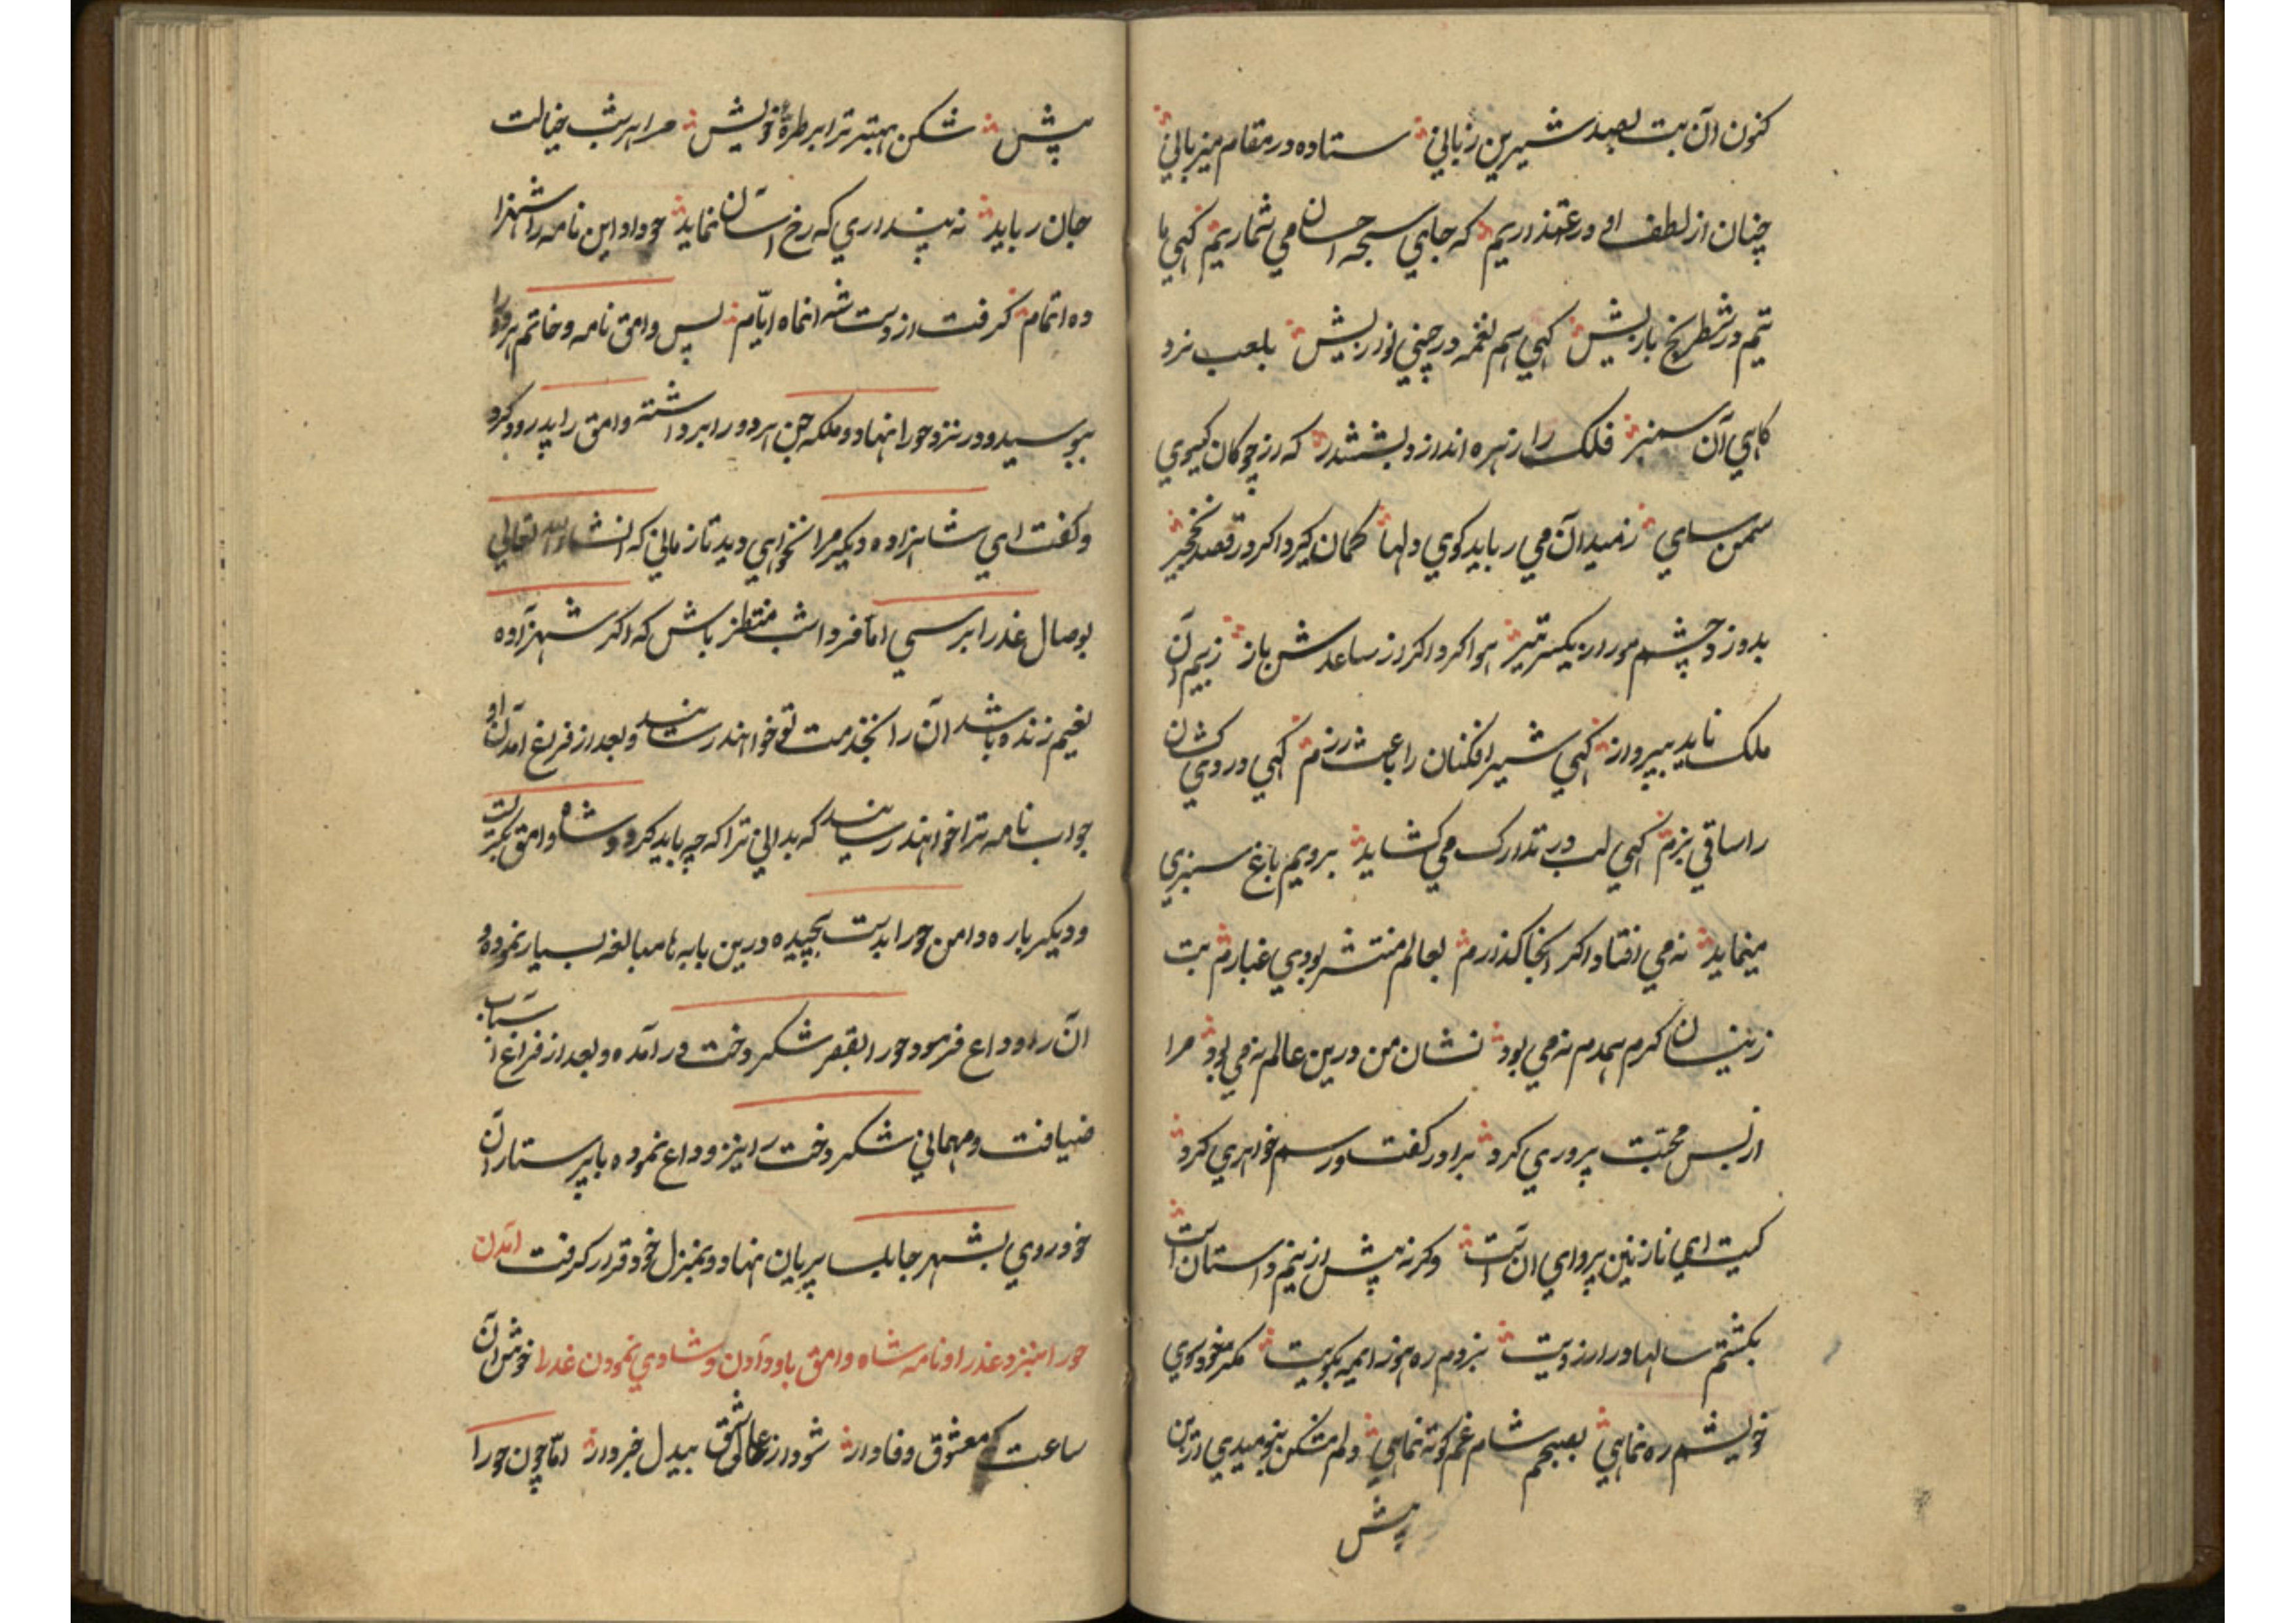 کنون آن بت بصد شیرین زبانی ستاده در مقام میزبانی
چنان از لطف او در عذریم که جای سبحه احسان می شماریم کهی با
تیم در شطرنج بازیش کهی هم نغمه در چنی نوازیش بلعب نرد
کاهی آن سمنبر فلک را زهره اندازد بششدر که از چوکان کیسوی
سمن سای ز میدان می رباید کوی دلها کمان کیرد اکر در قصد نخجیر
بدوزد چشم مور از یکسر تیر هوا کرد اکر از ساعدش باز ز بیم آن
ملک ناید بپرواز کهی شیر افکنان را باعث رزم کهی دردی کشان
را ساقی بزم کهی لب در تدارک می کشاید برویم باغ سبزی
مینماید نه می افتاد اکر اینجا کذارم بعالم منتشر بودی غبارم بت
زینسان کرم همدم نه می بود نشان من درین عالم نه می بود مرا
از بس محبت پروری کرد برادر کفت و رسم خواهری کرد
کیت ای نازنین پروای آنست وکرنه پیش ازینم داستانست
بکشتم سالها در آرزویت نبردم ره هنوز ای مه بکویت مکر خود سوی
خویشم ره نمایی بصبحم شام غم کوته نمایی دلم مشکن بنومیدی ازین
پیش
پیش شکن بهتر ترا بر طرهٔ خویش مرا هر شب خیالت
جان رباید نه پنداری که رخ آسان نماید چو داد این نامه را شهزا
ده اتمام کرفت از دست شه آنماه ایام پس وامق نامه و خاتم هر دو را
ببوسید و در نزد حورا نهاد و ملکه جن هر دو را برداشته وامق را پدرود کرد
و کفت ای شاهزاده دیکر مرا نخواهی دید تا زمانی که انشاء الله تعالی
بوصال عذرا برسی اما فردا شب منتظر باش که اکر شهزاده
نعیم زنده باشد آن را بخدمت تو خواهند رسانید و بعد از فراغ آمدن او
جواب نامه ترا خواهند رسانید که بدانی ترا که چه باید کرد و شاه وامق بحیرت
و دیکر باره دامن حورا بدست پیچیده درین بابها مبالغه بسیار نموده و
آن را وداع فرمود و حورا بقصر شکر دخت در آمده و بعد از فراغ اسباب
ضیافت و مهمانی شکر دخت را نیز وداع نموده با پرستاران
خود روی بشهر جابلسا پریان نهاد و بمنزل خود قرار کرفت آمدن
حورا بنزد عذرا و نامه شاه وامق باو دادن و شادی نمودن عذرا خوش آن
ساعت که معشوق وفادار شود از عاشق بیدل خبردار اما چون حورا